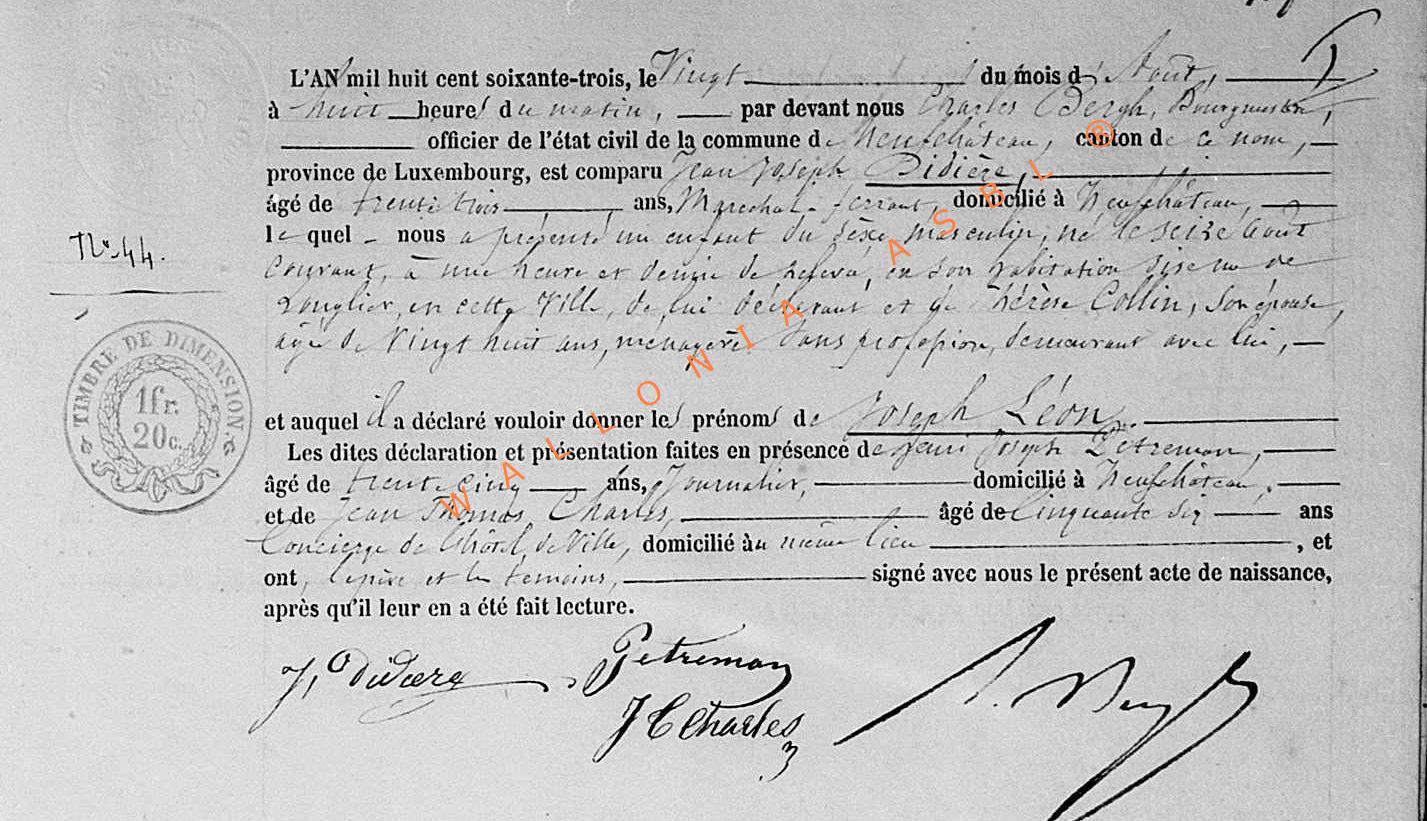 L'AN mil huit cent soixante-trois, le Vingt du mois d'Août,
à huit heures du matin, par devant nous Charles Bergh, Bourgmestre,
officier de l'état civil de la commune de Neufchâteau, canton de ce nom,
province de Luxembourg, est comparu Jean Joseph Didière,
âgé de trente trois ans, Maréchal-ferrant, domicilié à Neufchâteau,
le quel nous a présenté un enfant du sèxe masculin, né le seize Août
courant, à une heure et demie de relevée, en son habitation sise rue de
Longlier, en cette Ville, de lui déclarant et de Thérèse Collin, son épouse,
âgé de Vingt huit ans, ménagère sans profession, demeurant avec lui,
N°. 44.
et auquel il a déclaré vouloir donner les prénoms de Joseph Léon.
Les dites déclaration et présentation faites en présence de Jean Joseph Pétreman,
âgé de trente cinq ans, Journalier, domicilié à Neufchâteau,
et de Jean Thomas Charles, âgé de Cinquante six ans
Concierge de l'hôtel de Ville, domicilié au même lieu, et
ont, le père et les témoins, signé avec nous le présent acte de naissance,
après qu'il leur en a été fait lecture.
TIMBRE DE DIMENSION
1fr.
20c.
J, Didière
Petreman
J C Charles
WALLONIA ASBL ®